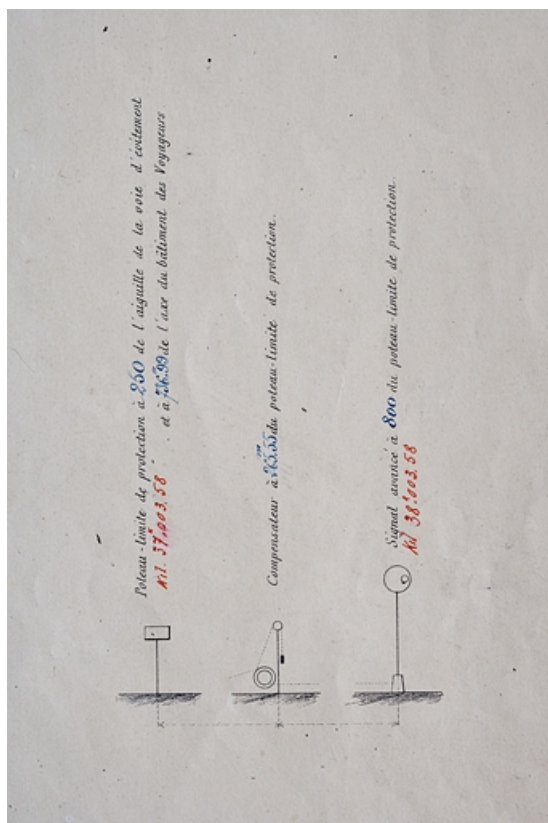 Poteau-limite de protection à 250 de l'aiguille de la voie d'évitement
et à 736.99 de l'axe du bâtiment des Voyageurs
Kil. 37.003.58
Compensateur à du poteau-limite de protection.
Signal avancé à 800 du poteau-limite de protection.
Kil 38.003.58